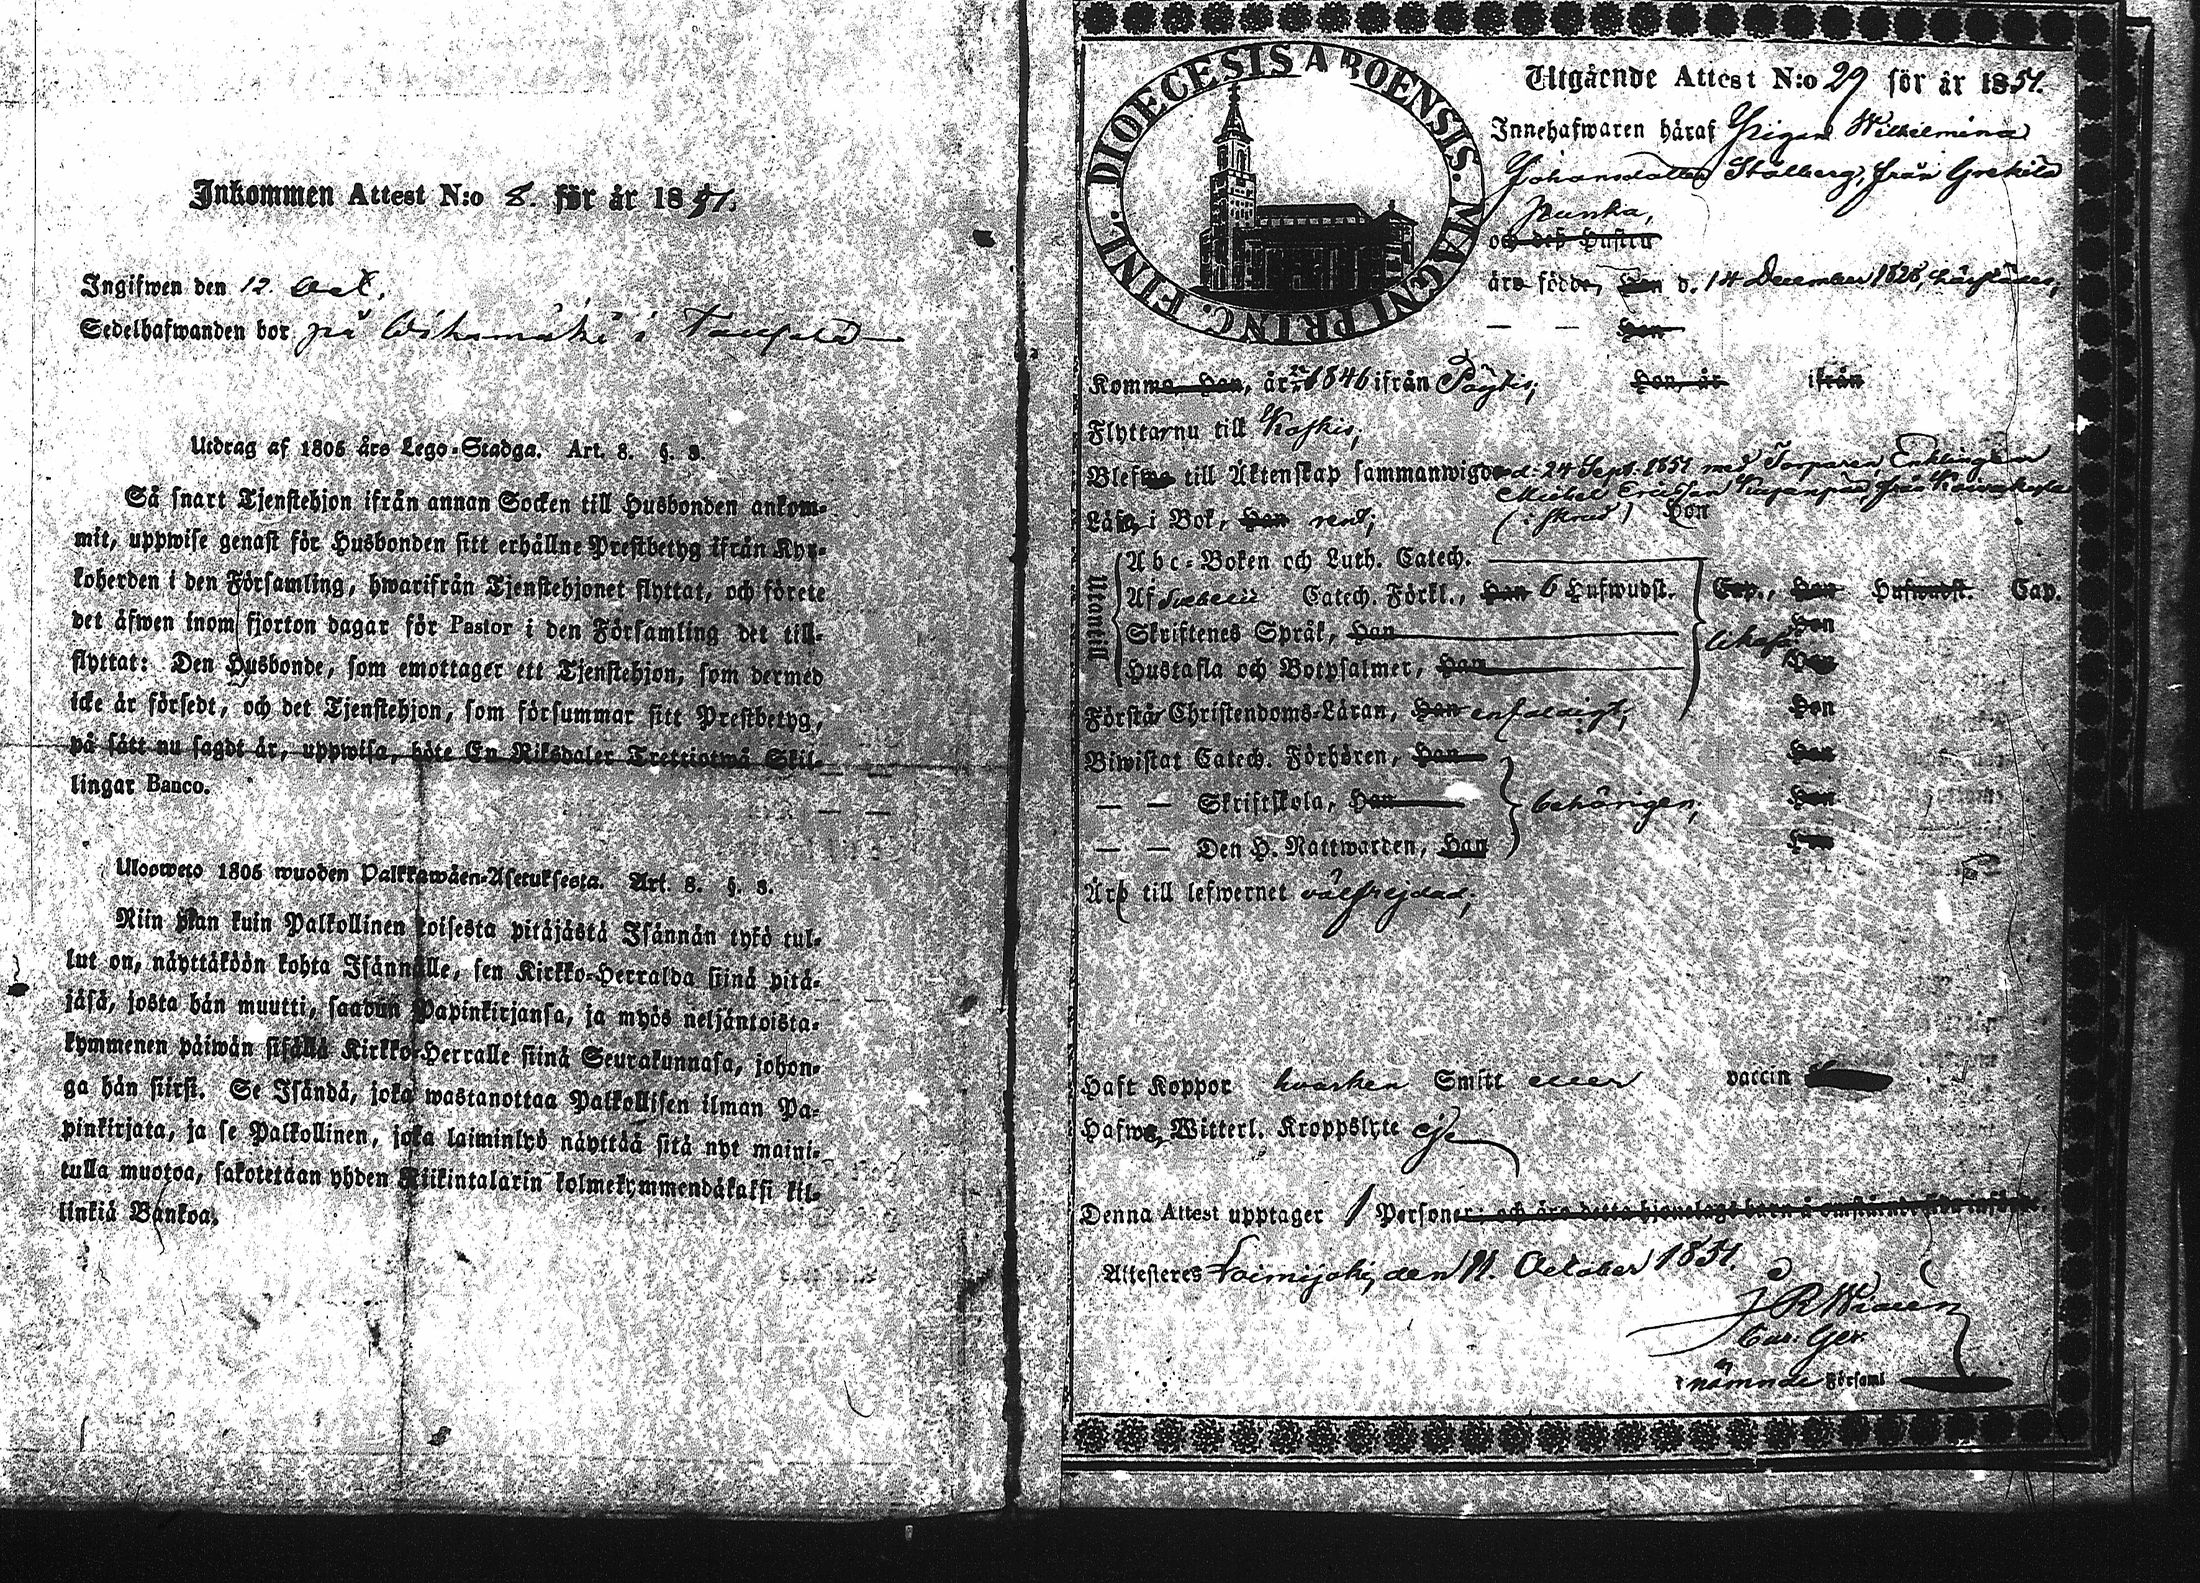 Inkommen Attest N:o 8. för år 1851.
Ingifwen den 12. Oct.
Sedelhafwanden bor på i
Utdrag af 1805 års Lego-Stadga. Art. 8. §. 3.
Så snart Tjenstehjon ifrån annan Socken till Husbonden ankom-
mit, uppwise genast för Husbonden sitt erhållne Prestbetyg ifrån Kyr-
koherden i den Församling, hwarifrån Tjenstehjonet flyttat, och förete
det äfwen inom fjorton dagar för Pastor i den Församling det till-
flyttat: Den Husbonde, som emottager ett Tjenstehjon, som dermed
icke är försedt, och det Tjenstehjon, som försummar sitt Prestbetyg,
på sätt nu sagdt är, uppwisa, böte En Riksdaler Trettiotwå Skil-
lingar Banco.
Ulosweto 1805 wuoden Palkkawäen-Asetuksesta. Art. 8. §. 3.
Niin pian kuin Palkollinen toisesta pitäjästä Isännän tykö tul-
lut on, näyttäköön kohta Isännälle, sen Kirkko-Herralda siinä pitä-
jäsä, josta hän muutti, saadun Papinkirjansa, ja myös neljäntoista-
kymmenen päiwän sisällä Kirkko-Herralle siinä Seurakunnasa, johon-
ga hän siirsi. Se Isändä, joka wastanottaa Palkollisen ilman Pa-
pinkirjata, ja se Palkollinen, joka laiminlyö näyttää sitä nyt maini-
tulla muotoa, sakotetaan yhden Riikintalarin kolmekymmendäkaksi kil-
linkiä Bankoa.
DIOECESIS ABOENSIS. MAGNI PRINC. FINL.
Utgående Attest N:o 29 för år 1851.
Innehafwaren häraf Pigan Wilhelmina
Johansdotter Stålberg, från
och des Hustru
äro födde, Han d. 14 December 1828, härstädes,
— — Hon
Komme Han, år 1846 ifrån Pöytis, Hon, år ifrån
Flyttar nu till Koskis,
Blefwo till Äktenskap sammanwigde d. 24 Sept. 1851 med Torparen
Michel Ericsson från
Läsa, i Bok, Han rent, Hon
Utantill
Abc-Boken och Luth. Catech.
Af Svebelii Catech. Förkl., Han 6 Hufwudst. Cap., Hon Hufwudst. Cap.
Skriftenes Språk, Han Hon
Hustafla och Botpsalmer, Han Hon
Förstår Christendoms-Läran, Han enfaldigt, Hon
Biwistat Catech. Förhören, Han Hon
— — Skriftskola, Han behörigen, Hon
— — Den H. Nattwarden, Han Hon
Äro till lefwernet välfrejdad,
Haft Koppor hvarken Smitt eller vaccin
Hafwa Witterl. Kroppslyte ej
Denna Attest upptager 1 Personer
Attesteras Loimijoki, den 11. October 1851.
nämnde Församl